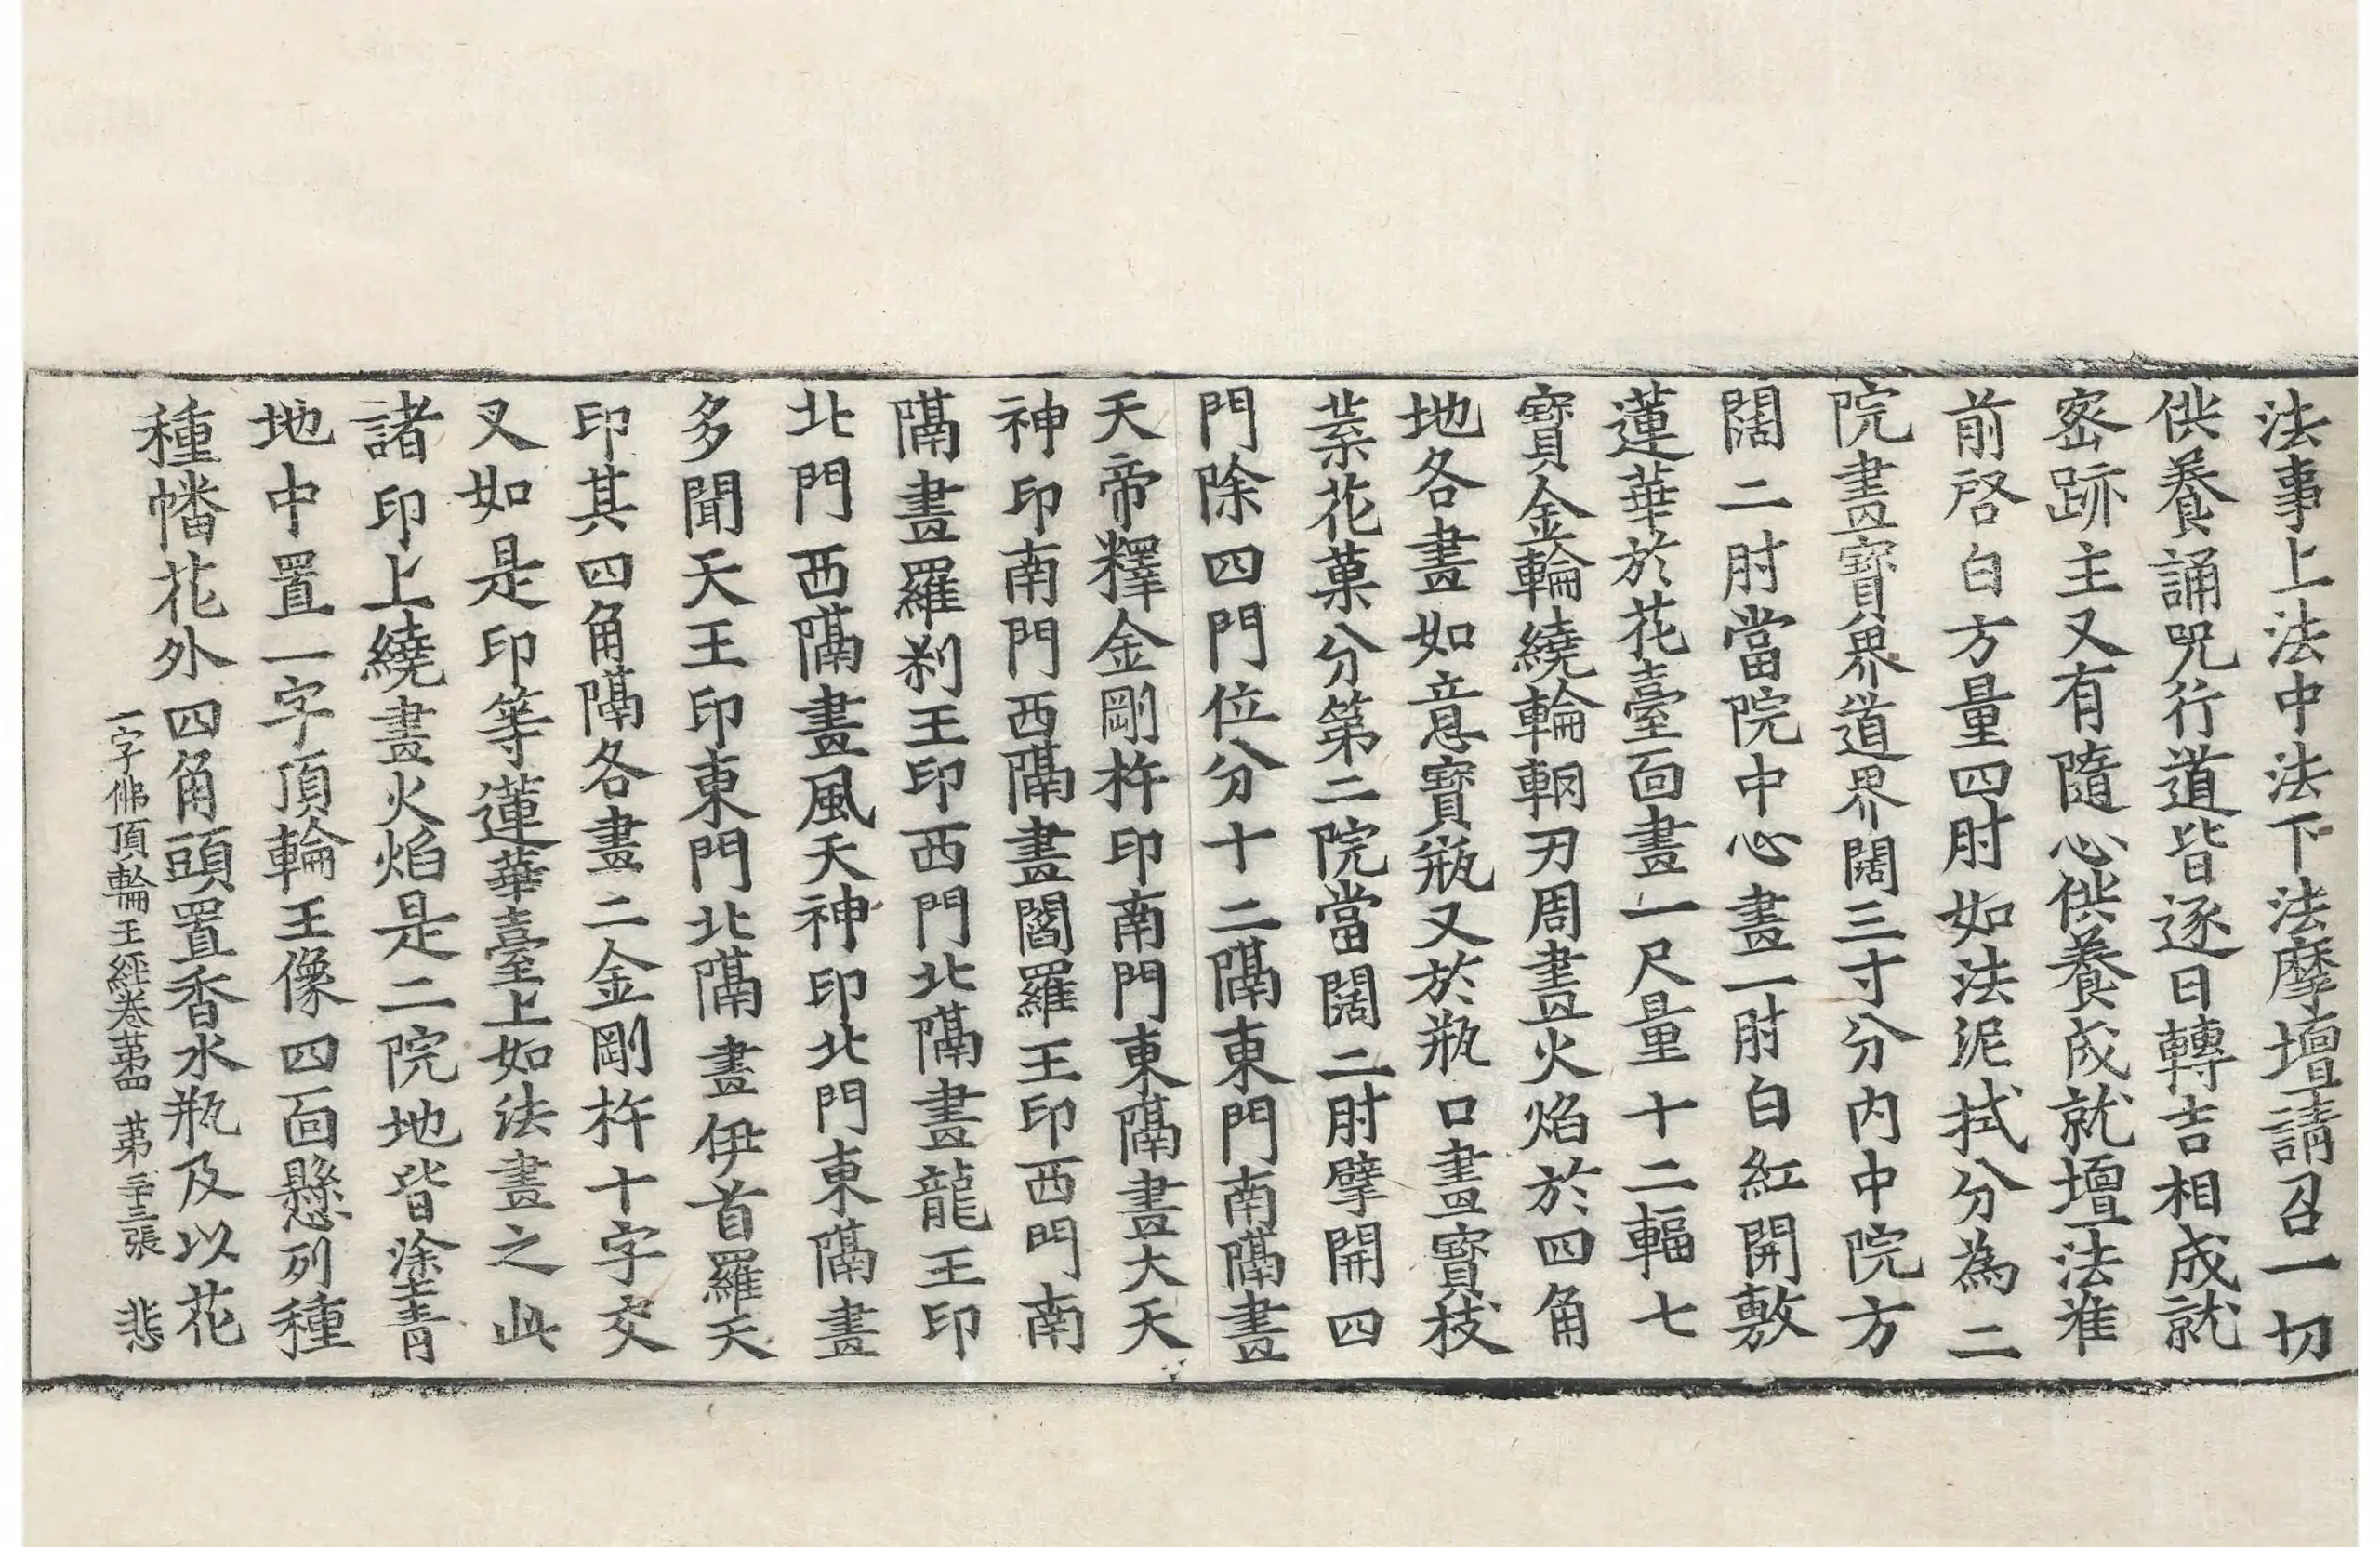 法事上法中法下法摩壇請召一切
供養誦呪行道皆逐日轉吉相成就
密跡主又有隨心供養成就壇法准
前啓白方量四肘如法泥拭分為二
院畫寶界道界闊三寸分內中院方
闊二肘當院中心畫一肘白紅開敷
蓮華於花臺面畫一尺量十二輻七
寶金輪繞輪輞刃周畫火焰於四角
地各畫如意寶瓶又於瓶口畫寶枝
葉花菓分第二院當闊二肘擘開四
門除四門位分十二隔東門南隔畫
天帝釋金剛杵印南門東隔畫大天
神印南門西隔畫閻羅王印西門南
隔畫羅剎王印西門北隔畫龍王印
北門西隔畫風天神印北門東隔畫
多聞天王印東門北隔畫伊首羅天
印其四角隔各畫二金剛杵十字交
叉如是印等蓮華臺上如法畫之此
諸印上繞畫火焰是二院地皆塗青
地中置一字頂輪王像四面懸列種
種幡花外四角頭置香水瓶及以花
一字佛頂輪王經卷第四 第三十三張 悲